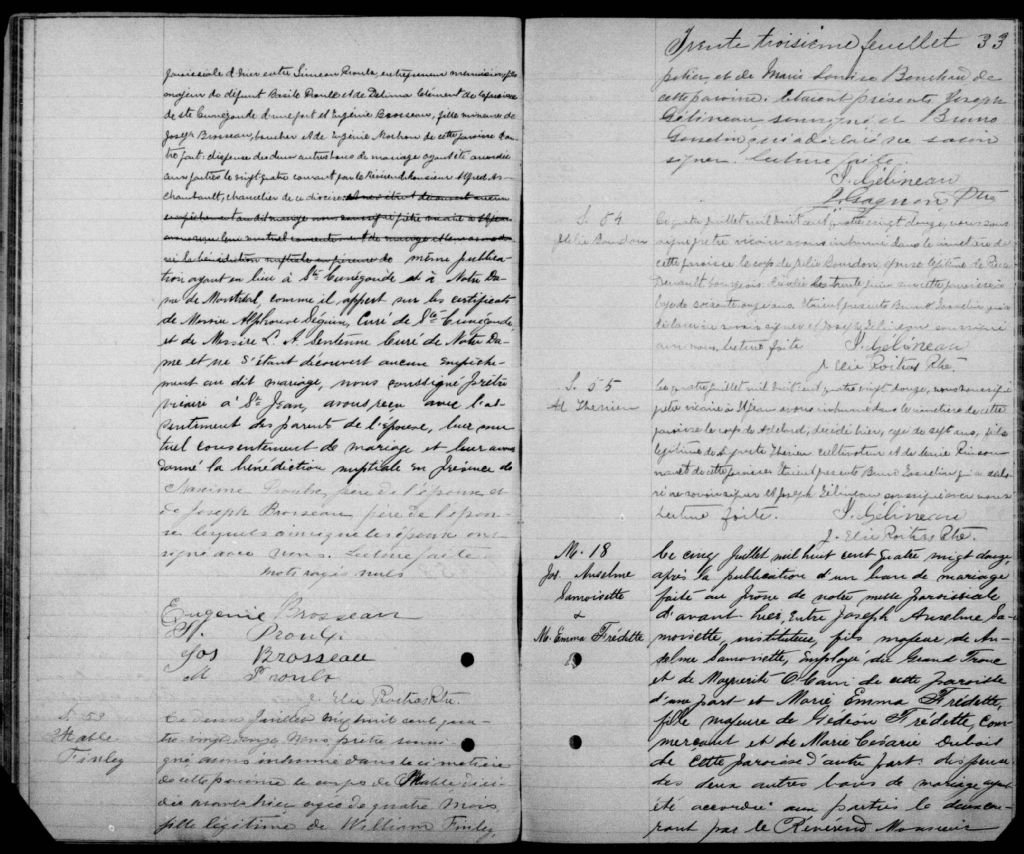 paroissiale d'hier entre Siméon Proulx, entrepreneur menuisier, fils
majeur de défunt Basile Proulx et de Delima Clément de la paroisse
de Ste Cunégonde d'une part et Eugénie Brosseau, fille mineure de
Joseph Brosseau, boucher et de Eugénie de cette paroisse d'au
tre part: dispense des deux autres bans de mariage ayant été accordée
aux parties le vingt quatre courant par le Révérend Monsieur Alfred Ar-
chambault, chancelier de ce diocèse
de même publica
tion ayant eu lieu à Ste Cunégonde et à Notre Da
me de Montréal, comme il appert sur les certificats
de Messire Alphonse Séguin, Curé de Ste Cunégonde
et de Messire L. A. Sentenne Curé de Notre Da
me et ne s'étant découvert aucun empêche-
ment au dit mariage, nous soussigné prêtre
vicaire à St Jean, avons reçu avec l'as
sentiment des parents de l'épouse, leur mu
tuel consentement de mariage et leur avons
donné la bénédiction nuptiale en présence de
Maxime Proulx, père de l'époux et
de Joseph Brosseau père de l'épou-
se lesquels ainsi que les époux ont
signé avec nous. Lecture faite
mots rayés nuls
Eugénie Brosseau
S. Proulx
Jos Brosseau
M Proulx
J. Elie Poitras Ptre.
S. 53
Mable
Finley
Le deux Juillet mil huit cent qua-
tre vingt douze Nous prêtre soussi-
gné avons inhumé dans le cimetière
de cette paroisse le corps de Mable décé-
dée avant hier agée de quatre mois,
fille légitime de William Finley,
Trente troisième feuillet 33
potier, et de Marie Louise Bouchard de
cette paroisse. Etaient présents Joseph
Gélineau soussigné et Bruno
Gosselin qui a déclaré ne savoir
signer. Lecture faite.
J. Gélineau
J. Gagnon Ptre
S. 54
Délie Bourdon
Le quatre juillet mil huit cent quatre vingt douze, nous sous
signé prêtre vicaire avons inhumé dans le cimetière de
cette paroisse le corps de Délie Bourdon, épouse légitime de
bourgeois décédée le trente juin en cette paroisse à
l'age de soixante onze ans. Etaient présents Bruno Gosselin qui a
déclaré ne savoir signer et Joseph Gélineau soussigné
avec nous. Lecture faite J. Gélineau
J. Elie Poitras Ptre.
S. 55
Ad Therrien
Le quatre juillet mil huit cent quatre vingt douze, nous soussigné
prêtre vicaire à St Jean avons inhumé dans le cimetière de cette
paroisse le corps de Adélard, décédé hier, agé de sept ans, fils
légitime de Therrien cultivateur et de
de cette paroisse. Etaient présents Bruno Gosselin qui a décla
ré ne savoir signer et Joseph Gélineau soussigné avec nous
Lecture faite. J. Gélineau
J. Elie Poitras Ptre.
M. 18
Jos. Anselme
Samoisette
&
M. Emma Frédette
Le cinq Juillet mil huit cent quatre vingt douze,
après la publication d'un ban de mariage
faite au prône de notre messe paroissiale
d'avant hier, entre Joseph Anselme Sa-
moisette, instituteur, fils majeur de An-
selme Samoisette, employé du Grand Tronc
et de Marguerite de cette paroisse
d'une part et Marie Emma Frédette,
fille majeure de Gédéon Frédette, com
merçant et de Marie Césarie Dubois
de cette paroisse d'autre part: dispense
des deux autres bans de mariage ayant
été accordée aux parties le deux cou-
rant par le Révérend Monsieur